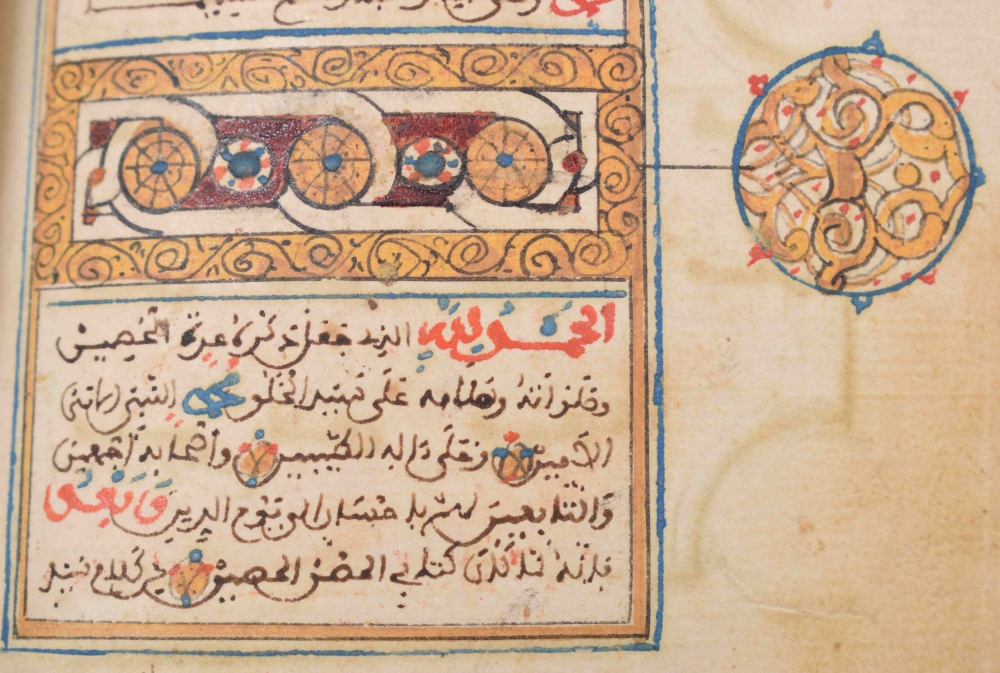 الحمد لله الذي جعل ذكره عدة الحصين
وصلواته وسلامه على سيد الخلق محمد النبي الامي
الأمين وعلى ءاله الطيبين وأصحابه أجمعين
والتابعين لهم بإحسان إلى يوم الدين وبعد
فإنه لما كان كتابي الحصن الحصين من كلام سيد